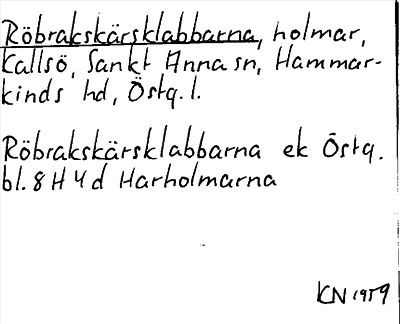 Röbrakskärsklabbarna, holmar,
Kallsö, Sankt Anna sn, Hammar-
kinds hd, Östg. l.
Röbrakskärsklabbarna ek Östg.
bl. 8 H 4 d Harholmarna
KN 1959